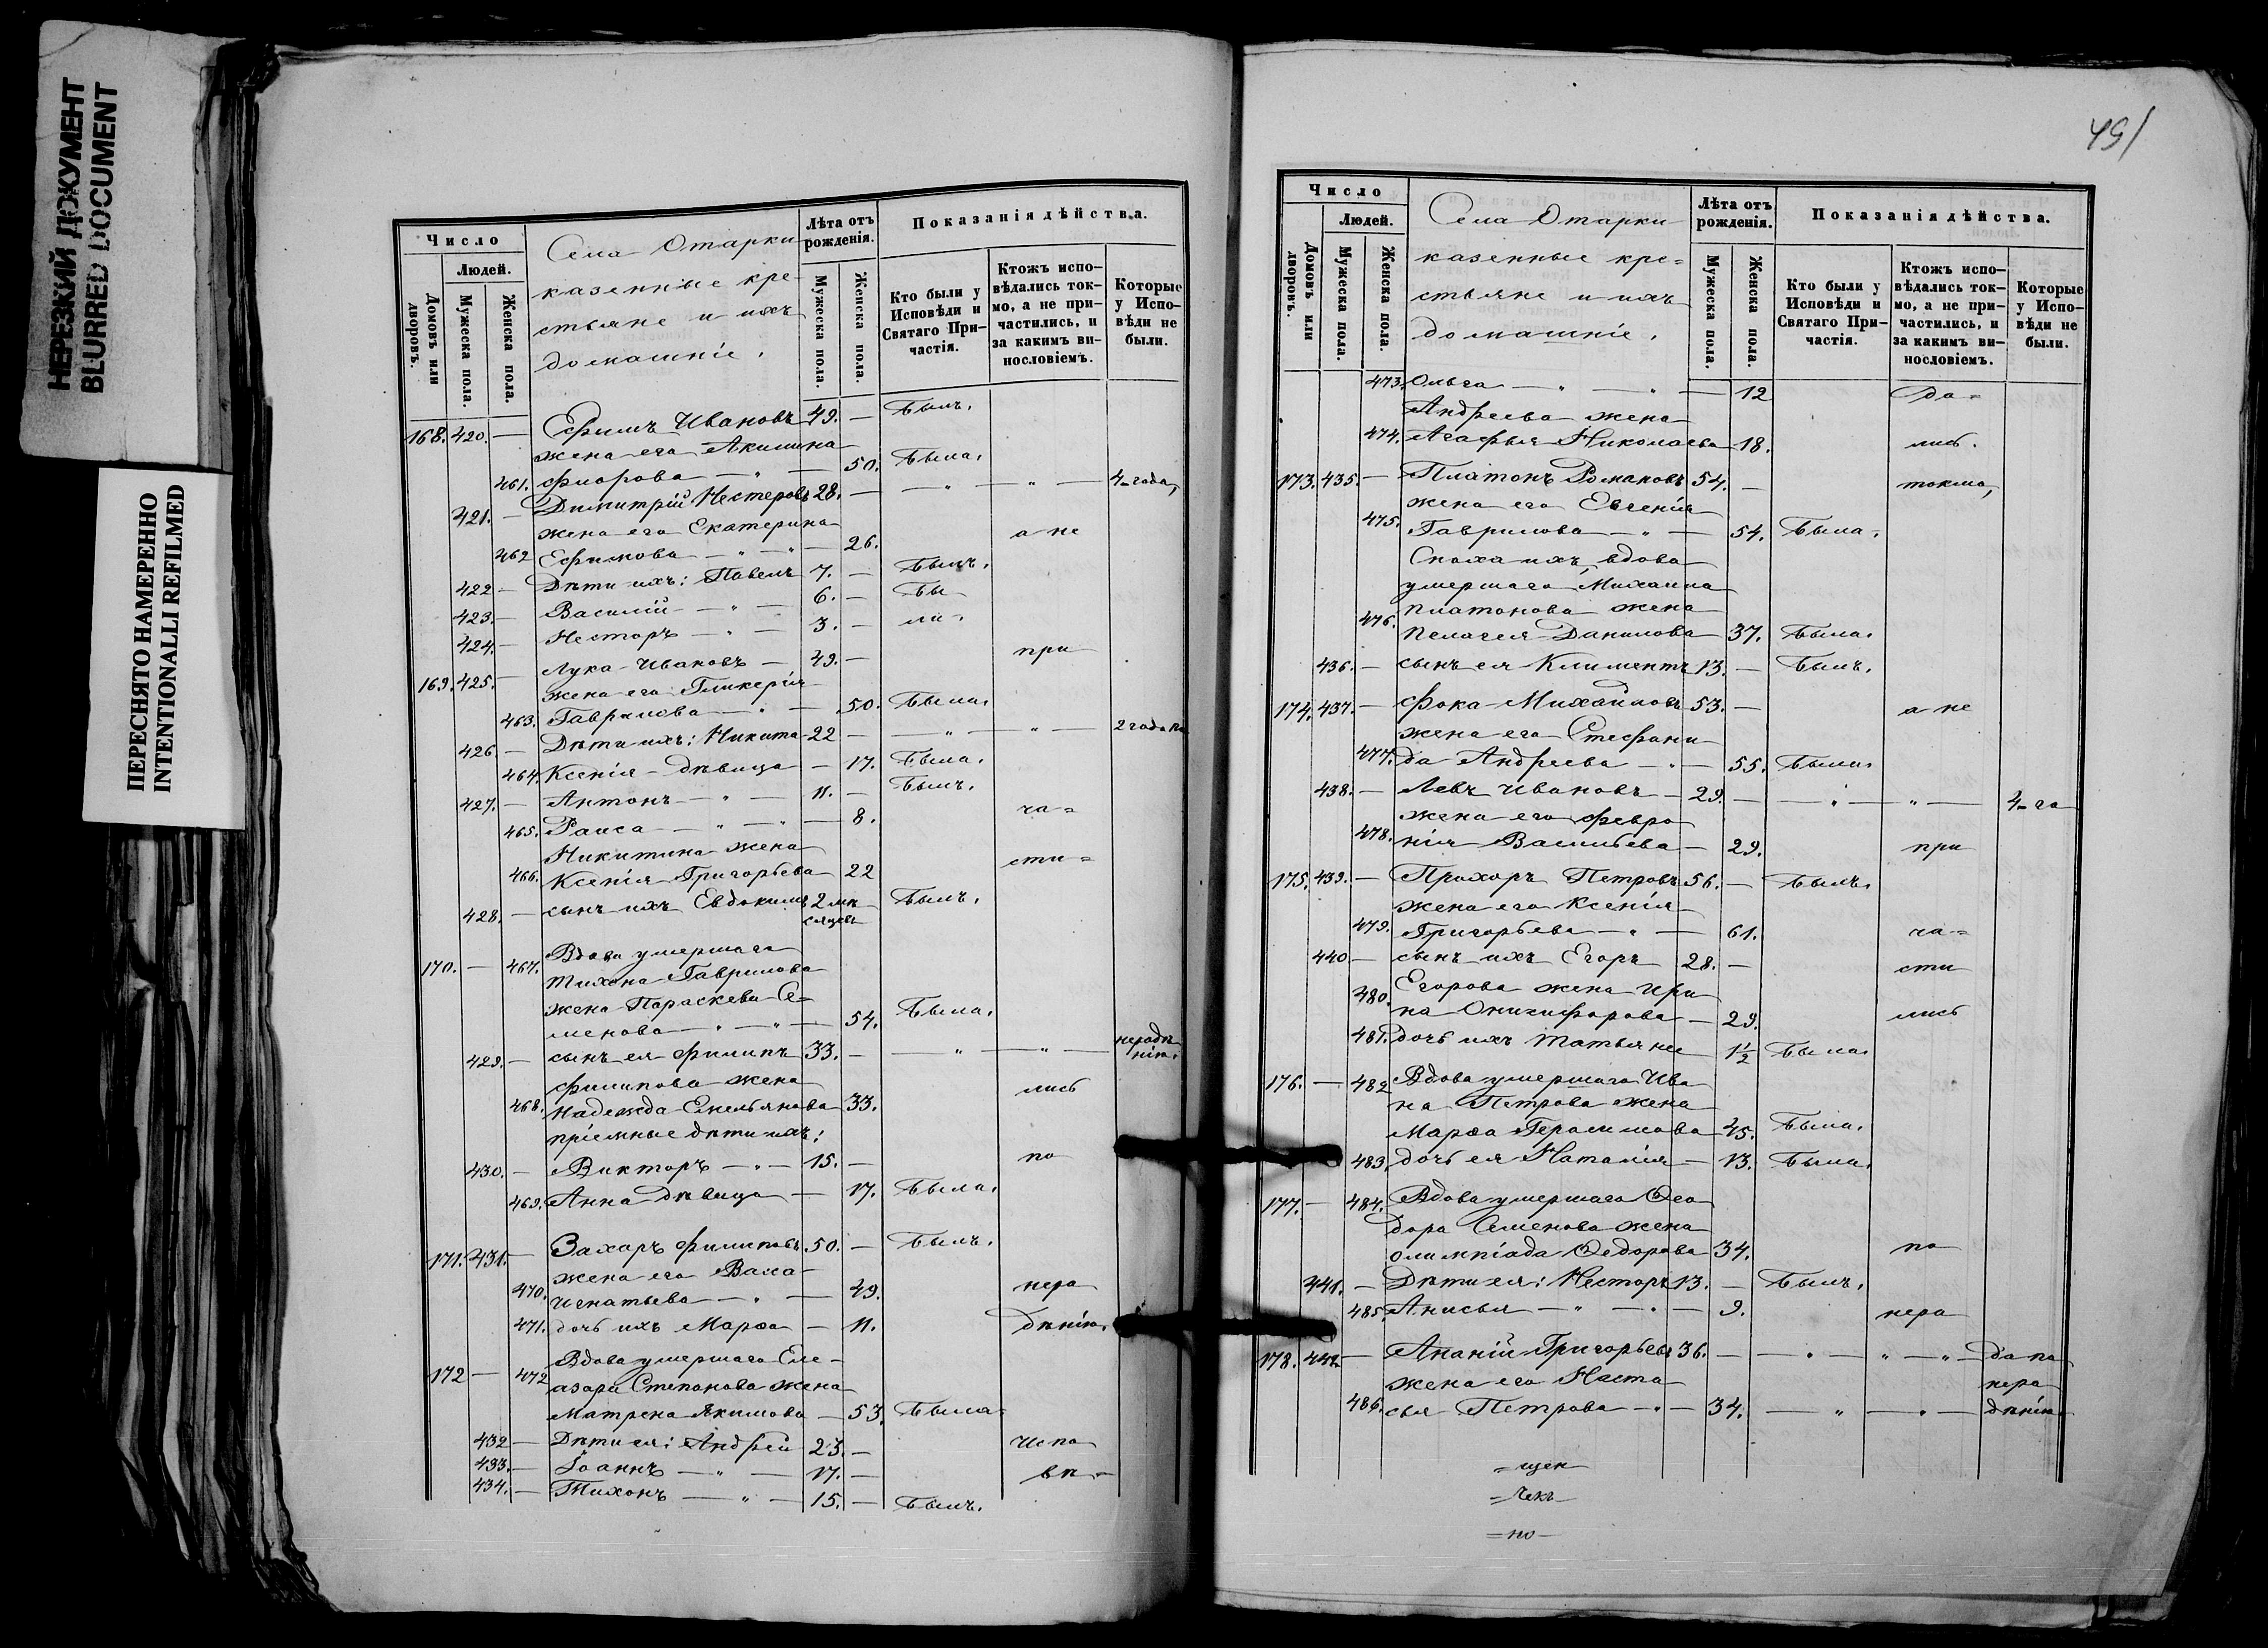 НЕРЕЗКИЙ ДОКУМЕНТ
BLURRED DOCUMENT
ПЕРЕСНЯТО НАМЕРЕННО
INTENTIONALLI REFILMED
Число
Людей.
Домовъ или дворовъ.
Мужеска пола.
Женска пола.
Села Отарки
казенные кре-
стьяне и ихъ
домашніе.
Лѣта отъ рожденія.
Мужеска пола.
Женска пола.
Показанія дѣйства.
Кто были у Исповѣди и Святаго Причастія.
Ктожъ исповѣдались токмо, а не причастились, и за какимъ винословіемъ.
Которые у Исповѣди не были.
168. 420. — Ефимъ Ивановъ 49. — Былъ.
жена его Акилина
461. Флорова — „ — 50. Была.
421. — Димитрій Нестеровъ 28. — — „ — „ — 4 года,
жена его Екатерина
462 Ефимова — „ — „ — 26. а не
422 — Дѣти ихъ: Павелъ 7. — Былъ.
423. — Василій — „ — 6. — Бы
424. — Несторъ — „ — 3. — ли.
169. 425. — Лука Ивановъ — 49. — при
жена его Гликерія
463. Гаврилова — „ — 50. Была.
426. — Дѣти ихъ: Никита 22 — — „ — „ — 2 года по
464. Ксенія дѣвица — 17. Была.
427. — Антонъ — „ — 11. — Былъ.
465. Раиса — „ — „ — 8. ча=
Никитина жена
466. Ксенія Григорьева 22 сти=
428. — сынъ ихъ Евдокимъ 2 мѣ Былъ.
сяцевъ
170. — 467. Вдова умершаго
Тихона Гаврилова
жена Параскева Се-
менова — „ — „ — 54. Была.
429. — сынъ ея Филипъ 33. — — „ — „ — нерадѣ
нію.
Филипова жена
468. Надежда Емельянова 33. лись
пріемные дѣти ихъ:
430. — Викторъ — „ — 15. — по
469. Анна дѣвица — 17. Была.
171. 431. — Захаръ Филиповъ 50. — Былъ.
жена его Васса
470. Игнатьева — „ — 49. нера
471. дочь ихъ Марѳа — 11. дѣнію.
172 — 472 Вдова умершаго Еле-
азара Степанова жена
Матрена Якимова — 53. Была.
432 — Дѣти ея: Андрей 23. — Испо
433. — Іоаннъ — „ — 17. — вѣ-
434. — Тихонъ — „ — 15. — Былъ.
451
Число
Людей.
Домовъ или дворовъ.
Мужеска пола.
Женска пола.
Села Отарки
казенные кре=
стьяне и ихъ
домашніе.
Лѣта отъ рожденія.
Мужеска пола.
Женска пола.
Показанія дѣйства.
Кто были у Исповѣди и Святаго Причастія.
Ктожъ исповѣдались токмо, а не причастились, и за какимъ винословіемъ.
Которые у Исповѣди не были.
473. Ольга — „ — „ — 12 да=
Андреева жена
474. Агафья Николаева 18. лись.
173. 435. — Платонъ Романовъ 54. — токмо,
жена его Евгенія
475. Гаврилова — „ — 54. Была.
Сноха ихъ, вдова
умершаго Михаила
Платонова жена
476. Пелагея Данилова 37. Была.
436. — сынъ ея Климентъ 13. — Былъ.
174. 437. — Фока Михайловъ 53. — а не
жена его Стефани
477. да Андреева — „ — 55. Была.
438. — Левъ Ивановъ — 29. — — „ — „ — 4 го
жена его Февро
478. нія Васильева — 29. при
175. 439. — Прохоръ Петровъ 56. — Былъ.
жена его Ксенія
479. Григорьева — „ — 61. ча=
440 — сынъ ихъ Егоръ 28. — сти
Егорова жена Ири
480. на Онисифорова — 29. лись
481. дочь ихъ Татьяна 1½ Была.
176. — 482 Вдова умершаго Ива
на Петрова жена
Марѳа Герасимова 45. Была.
483. дочь ея Наталія — 13. Была.
177. — 484. Вдова умершаго Ѳео
дора Семенова жена
Олимпіада Ѳедорова 34. по
441. — Дѣти ея: Несторъ 13. — Былъ.
485. Анисья — „ — „ — 9. нера
178. 442 — Ананій Григорьевъ 36. — — „ — „ — „ — да по
жена его Наста нера
486. сья Петрова — „ — 34. — „ — „ — дѣнію.
=щен—
=но—